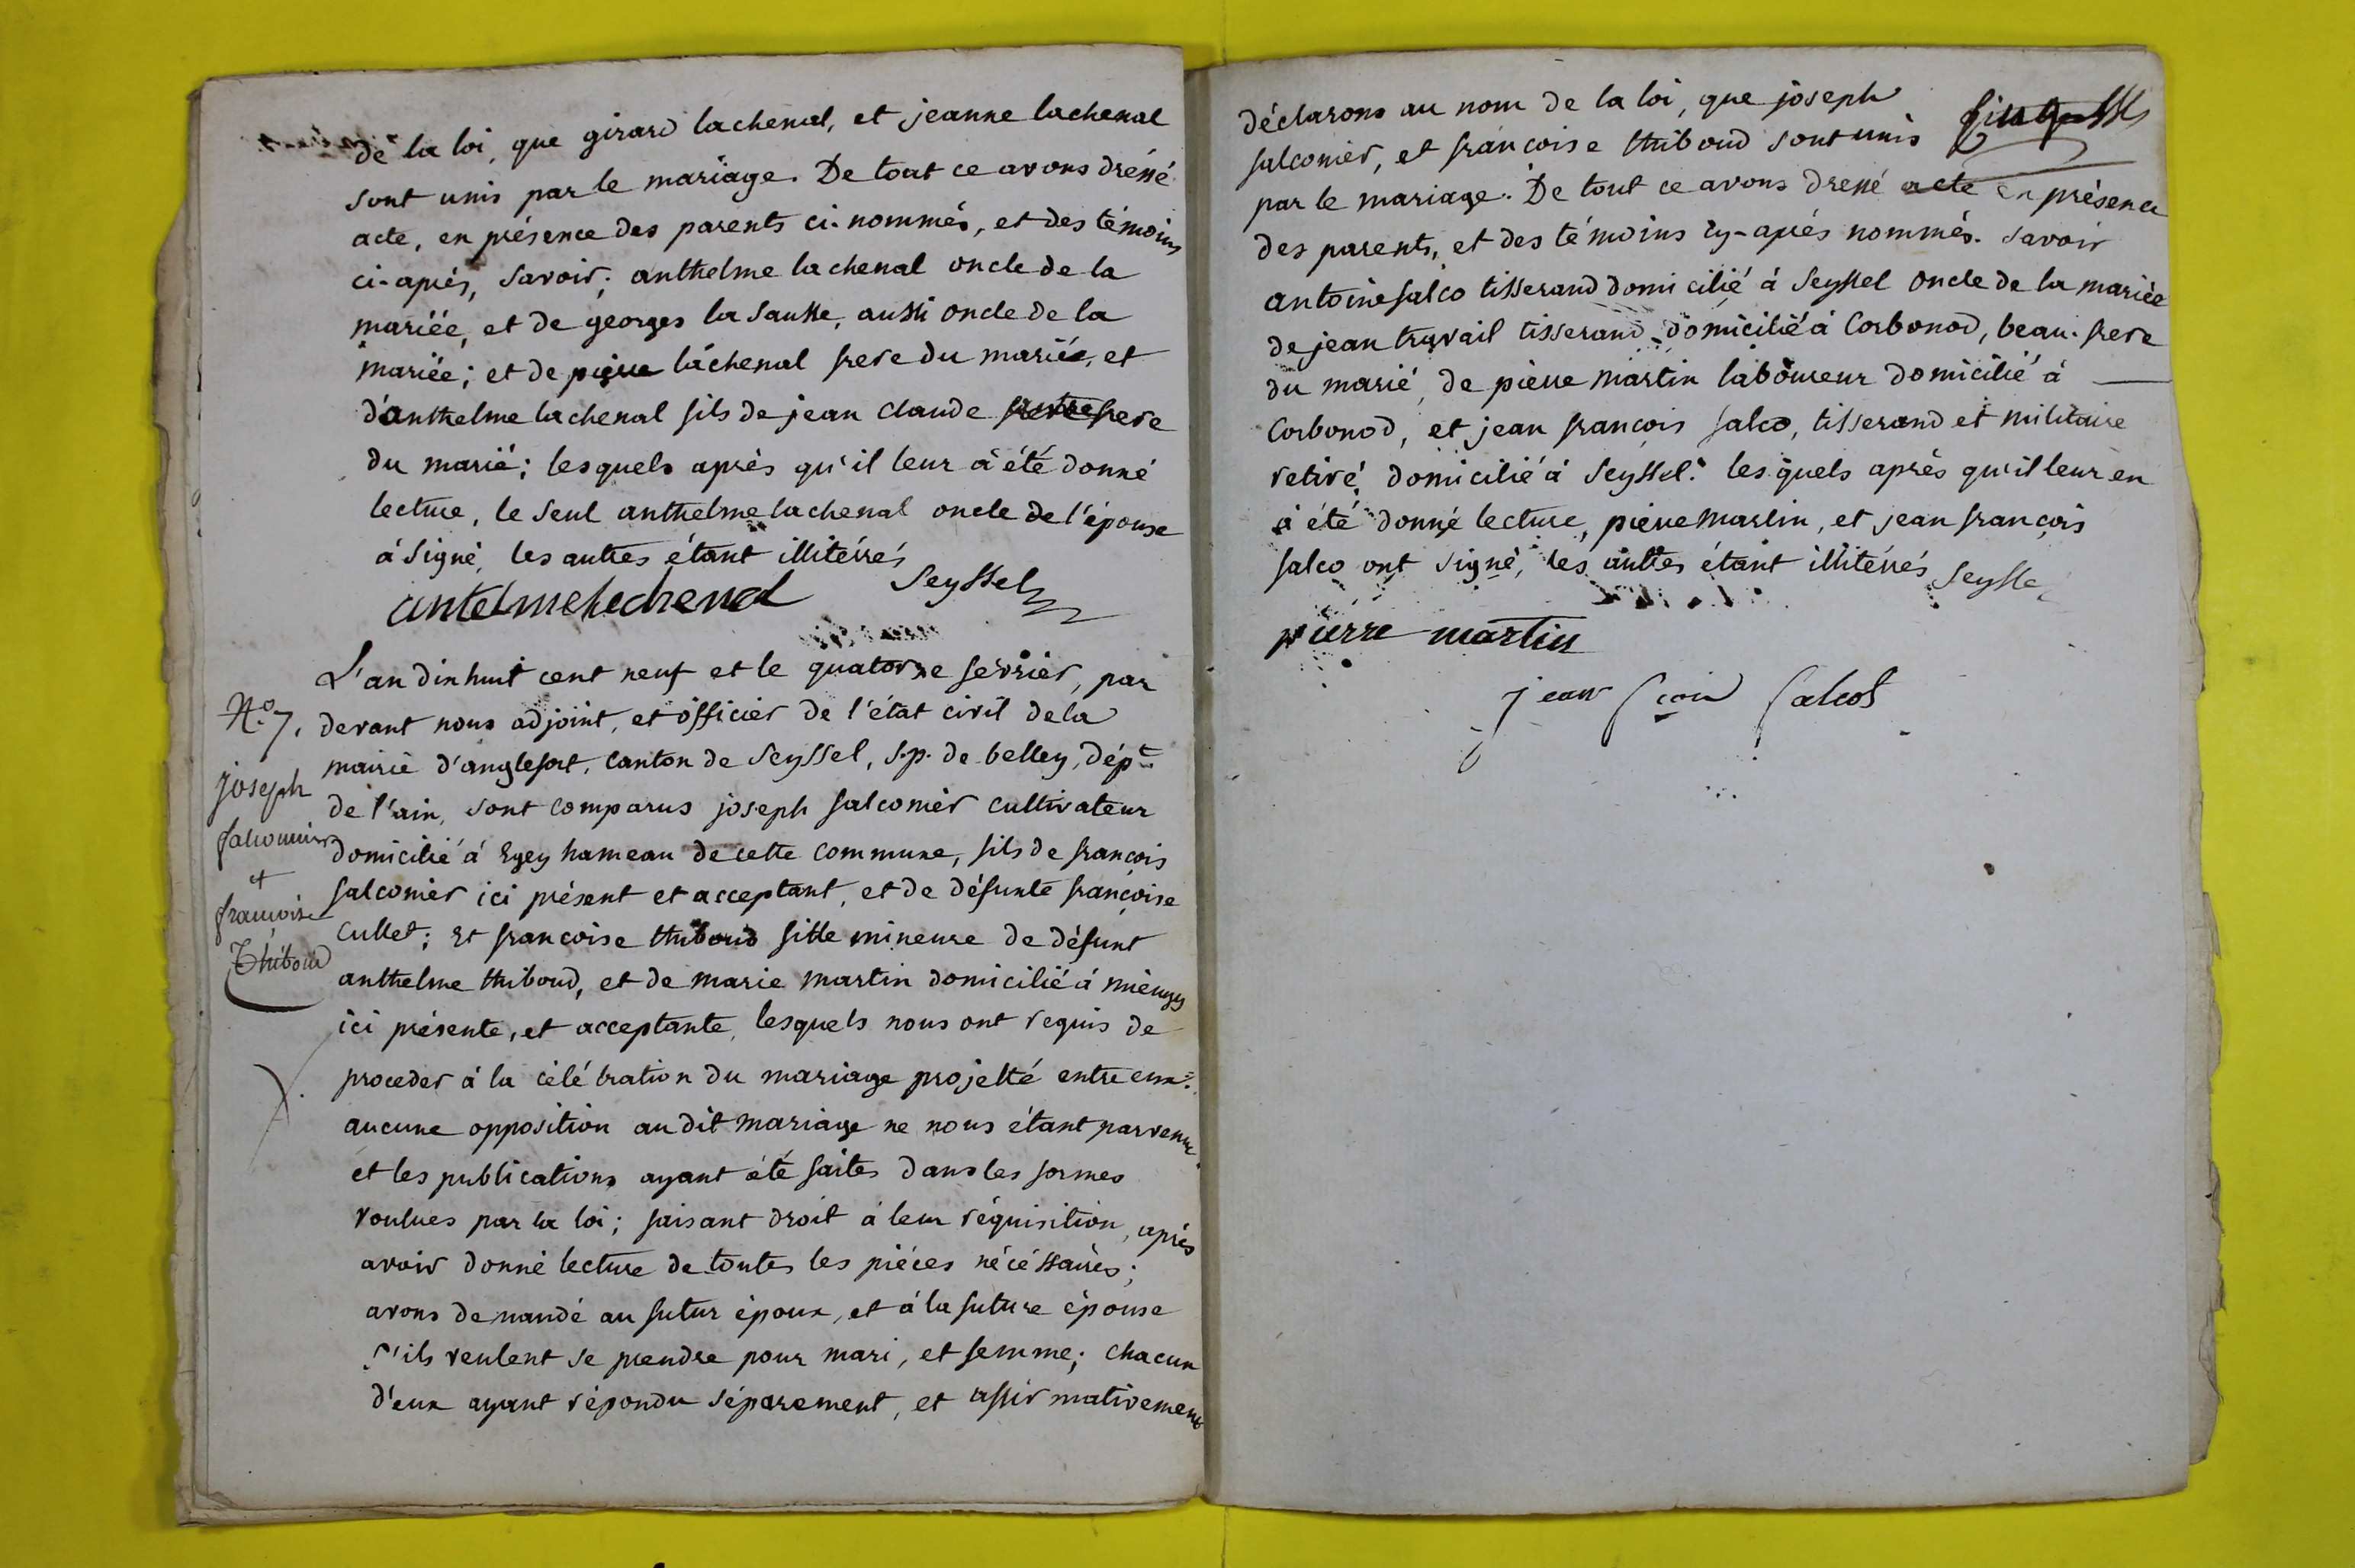 de la loi, que girard lachenal, et jeanne lachenal
sont unis par le mariage. De tout ce avons dréssé
acte, en présence des parents ci-nommés, et des témoins
ci-après, savoir; anthelme lachenal oncle de la
mariée, et de georges la sausse, aussi oncle de la
mariée; et de pierre lachenal frere du mariée, et
d'anthelme lachenal fils de jean claude frere
du marié; lesquels après qu'il leur à été donné
lecture, le seul anthelme lachenal oncle de l'épouse
à signé, les autres étant illitérrés
Seyssel
antelme lachenal
L'an dix huit cent neuf et le quatorze fevrier, par
N.o 7.
devant nous adjoint, et officier de l'état civil de la
mairie d'anglefort, canton de Seyssel, s.p. de belley, dép.t
joseph
de l'ain, sont comparus joseph falconier cultivateur
falconnier
domicilié à Eyey hameau de cette commune, fils de françois
et
falconier ici présent et acceptant, et de défunte françoise
françoise
cullet; Et francoise thiboud fille mineure de défunt
Thiboud
anthelme thiboud, et de marie martin domicilié à mieugy
ici présente, et acceptante, lesquels nous ont requis de
proceder à la célébration du mariage projetté entre eux.
aucune opposition au dit mariage ne nous étant parvenue
et les publications ayant été faites dans les formes
voulues par la loi; faisant droit à leur réquisition, après
avoir donné lecture de toutes les piéces nécéssaires;
avons demandé au futur époux, et à la future épouse
s'ils veulent se prendre pour mari, et femme; chacun
d'eux ayant répondu séparement, et affirmativement
déclarons au nom de la loi, que joseph
falconier, et françoise thiboud sont unis
par le mariage. De tout ce avons dressé acte en présence
des parents, et des témoins cy-après nommés. savoir
antoine falco tisserand domicilié à Seyssel oncle de la mariée
de jean travail tisserand domicilié à Corbonod, beau-frere
du marié, de pierre martin laboureur domicilié à
Corbonod, et jean françois falco, tisserand et militaire
retiré, domicilié à Seyssel. lesquels après qu'il leur en
à été donné lecture, pierre martin, et jean françois
falco ont signé, les autres étant illitérrés Seyssel
pierre martin
jean fçois falcoz